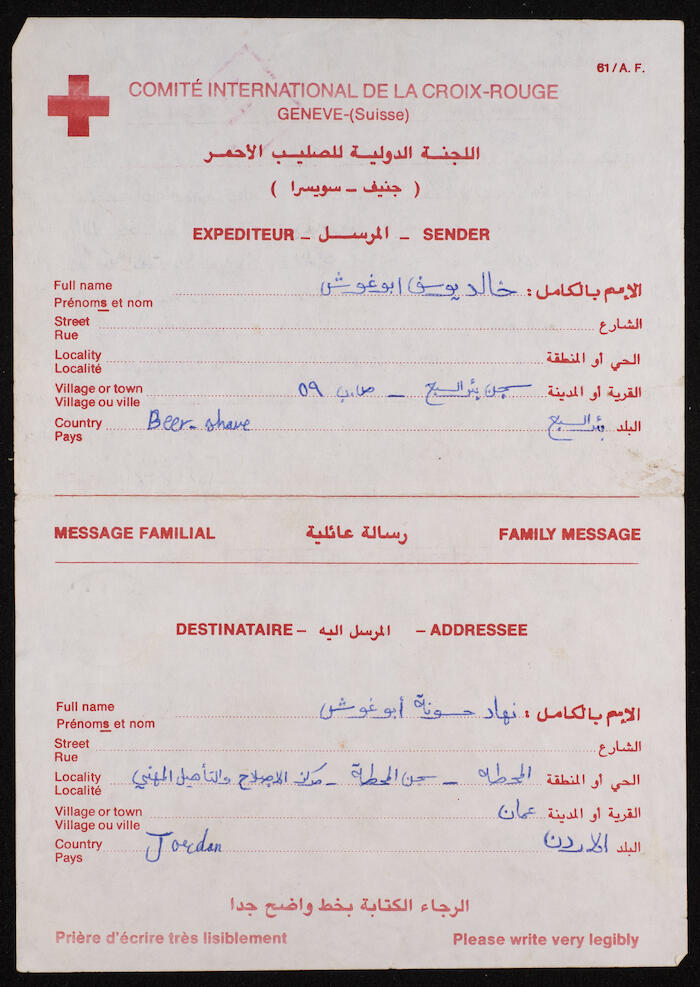 61/A. F.
COMITÉ INTERNATIONAL DE LA CROIX-ROUGE
GENEVE-(Suisse)
اللجنة الدولية للصليب الاحمر
( جنيف ـ سويسرا )
EXPEDITEUR ـ المرسل ـ SENDER
Full name خالد يوسف ابوغوش الإسم بالكامل :
Prénoms et nom
Street الشارع
Rue
Locality الحي أو المنطقة
Localité
Village or town سجن بئر السبع ـ ص.ب ٥٩ القرية أو المدينة
Village ou ville
Country Beer-shave بئر السبع البلد
Pays
MESSAGE FAMILIAL رسالة عائلية FAMILY MESSAGE
DESTINATAIRE ـ المرسل اليه ـ ADDRESSEE
Full name نهاد حسونة أبوغوش الإسم بالكامل :
Prénoms et nom
Street الشارع
Rue
Locality المحطه ـ سجن المحطة ـ مركز الاصلاح والتأهيل المهني الحي أو المنطقة
Localité
Village or town عمان القرية أو المدينة
Village ou ville
Country Jordan الاردن البلد
Pays
الرجاء الكتابة بخط واضح جدا
Prière d'écrire très lisiblement Please write very legibly